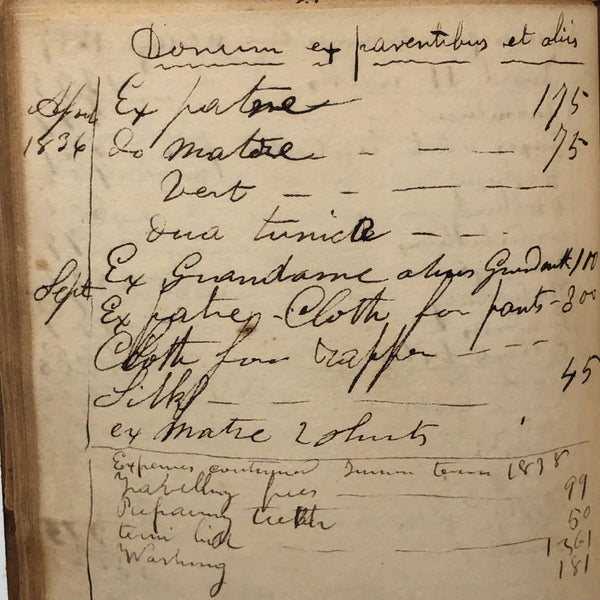 Donum ex parentibus et aliis
April Ex patre 175
1836 do matre 75
Vest
dua tunica
Ex Grandame alius 100
Sept Ex patre - Cloth for pants - 300
Cloth for wrapper
Silk 45
ex Matre 2 shirts
Expenses continued Summ term 1838
Travelling fees 99
Repairing teeth 50
term bill 1361
Washing 181